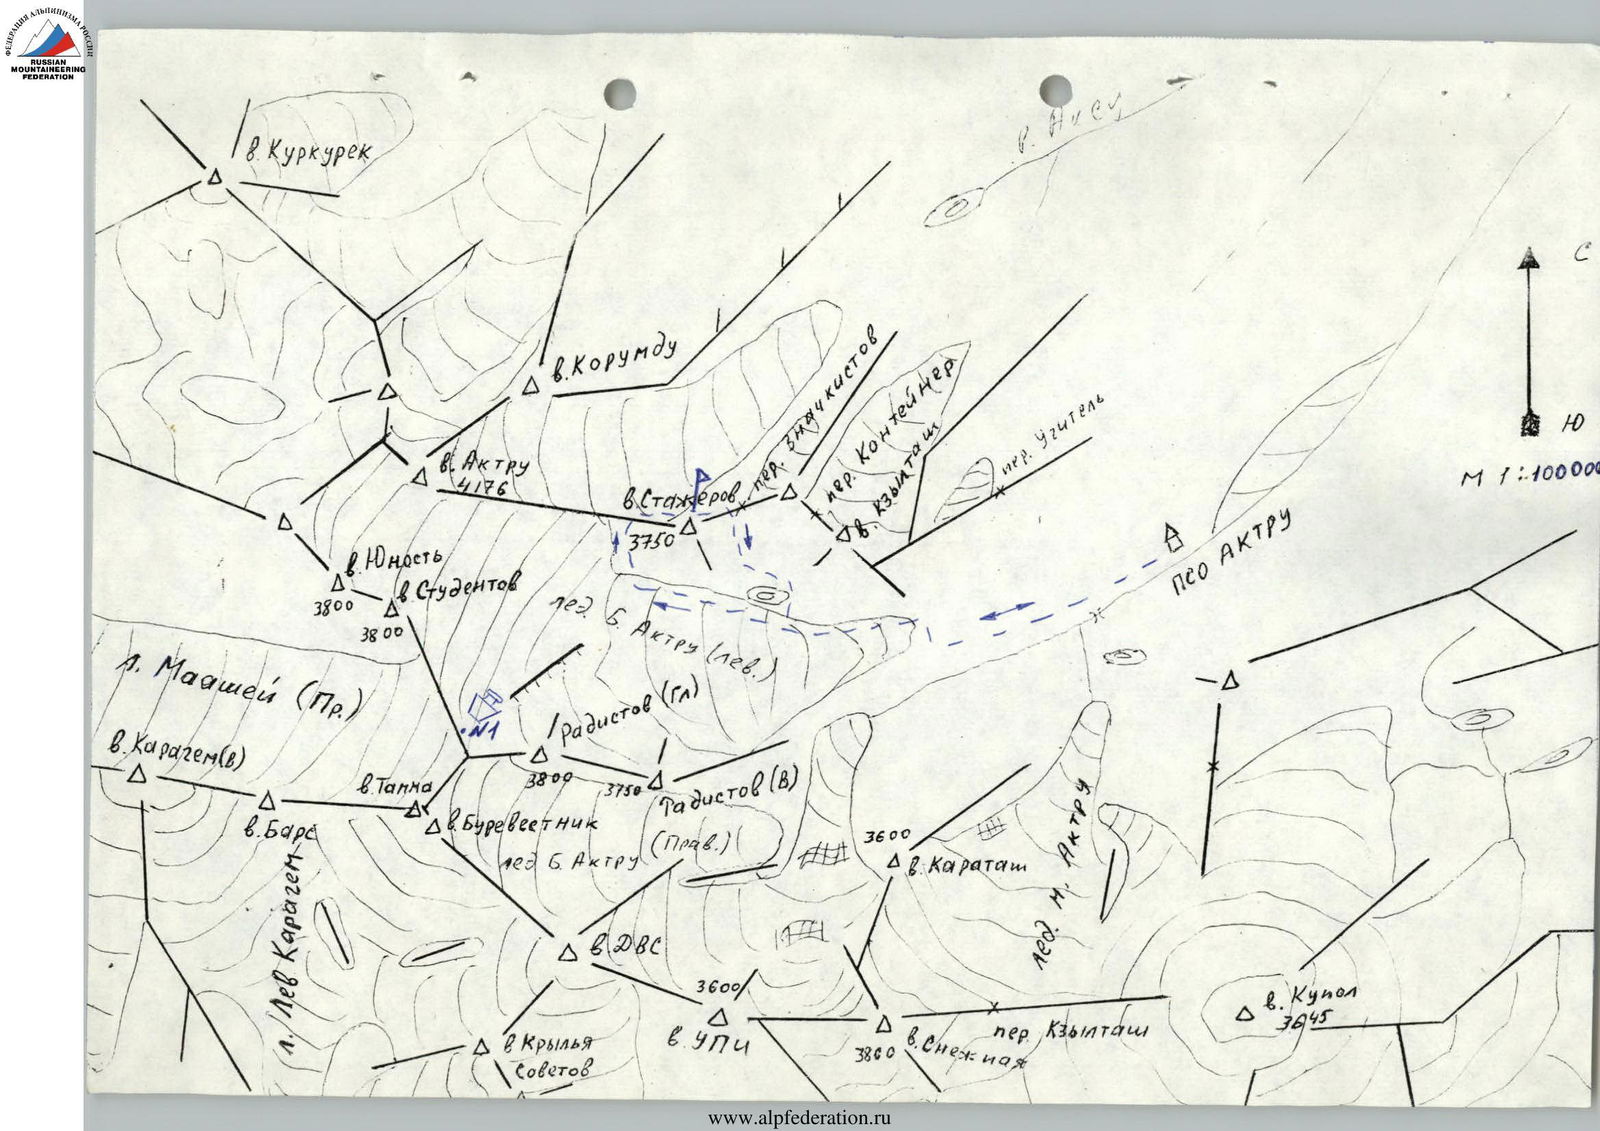 ФЕДЕРАЦИЯ АЛЬПИНИЗМА РОССИИ
RUSSIAN
MOUNTAINEERING
FEDERATION
р. Аксу
в. Куркурек
С
в. Корумду
пер. Значкистов
пер. Контейнер
в. Кзылташ
пер. Учитель
Ю
М 1:100000
в. Актру
4176
в. Стажеров
3750
ПСО АКТРУ
в. Юность
3800
в. Студентов
3800
лед. Б. Актру (лев.)
л. Маашей (Пр.)
N1
Радистов (Гл)
3800
в. Карагем(в)
3750
Радистов (В)
в. Тамма
в. Барс
в. Буревестник
лед Б. Актру (Прав.)
3600
в. Караташ
лед. М. Актру
л. Лев Карагем
в. ДВС
3600
в. УПИ
в. Купол
3645
пер. Кзылташ
в. Снежная
3800
в Крылья
Советов
www.alpfederation.ru